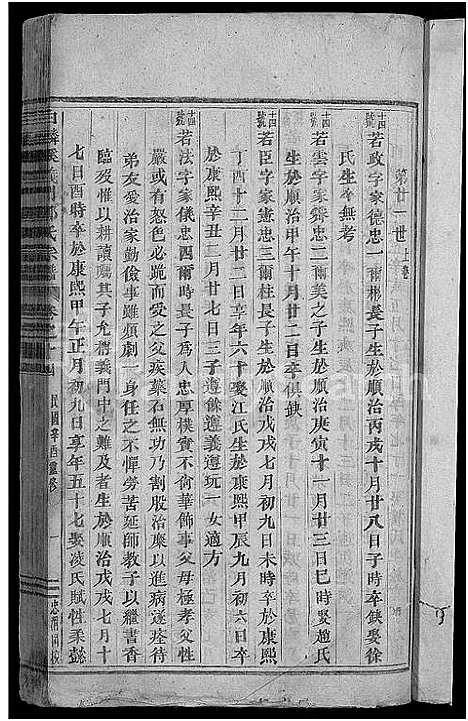 第廿一世 上巷
十四號 若政字家德忠一爾彬長子生於順治丙戌十月廿八日子時卒缺娶徐
氏生卒無考
十四號 若雲字家舜忠二爾美之子生於順治庚寅十一月廿三日巳時娶趙氏
生於順治甲午十月廿二日卒俱缺
十四號 若臣字家憲忠三爾柱長子生於順治戊戌七月初九日未時卒於康熙
丁酉十二月廿二日享年六十娶江氏生於康熙甲辰九月初六日卒
於康熙辛丑二月廿七日三子遵餘遵義遵玩一女適方
十四號 若法字家儀忠四爾時長子為人忠厚樸實不尚華飾事父母極孝父性
嚴或有怒色必跪而受之父疾藥石無功乃割股治糜以進病遂痊待
弟友愛治家勤儉事雖煩劇一身任之不憚勞苦延師教子以繼書香
臨歿惟以耕讀囑其子允稱義門中之難及者生於順治戊戌七月十
七日酉時卒於康熙甲午正月初九日享年五十七娶凌氏賦性柔懿
民國辛酉重修
一